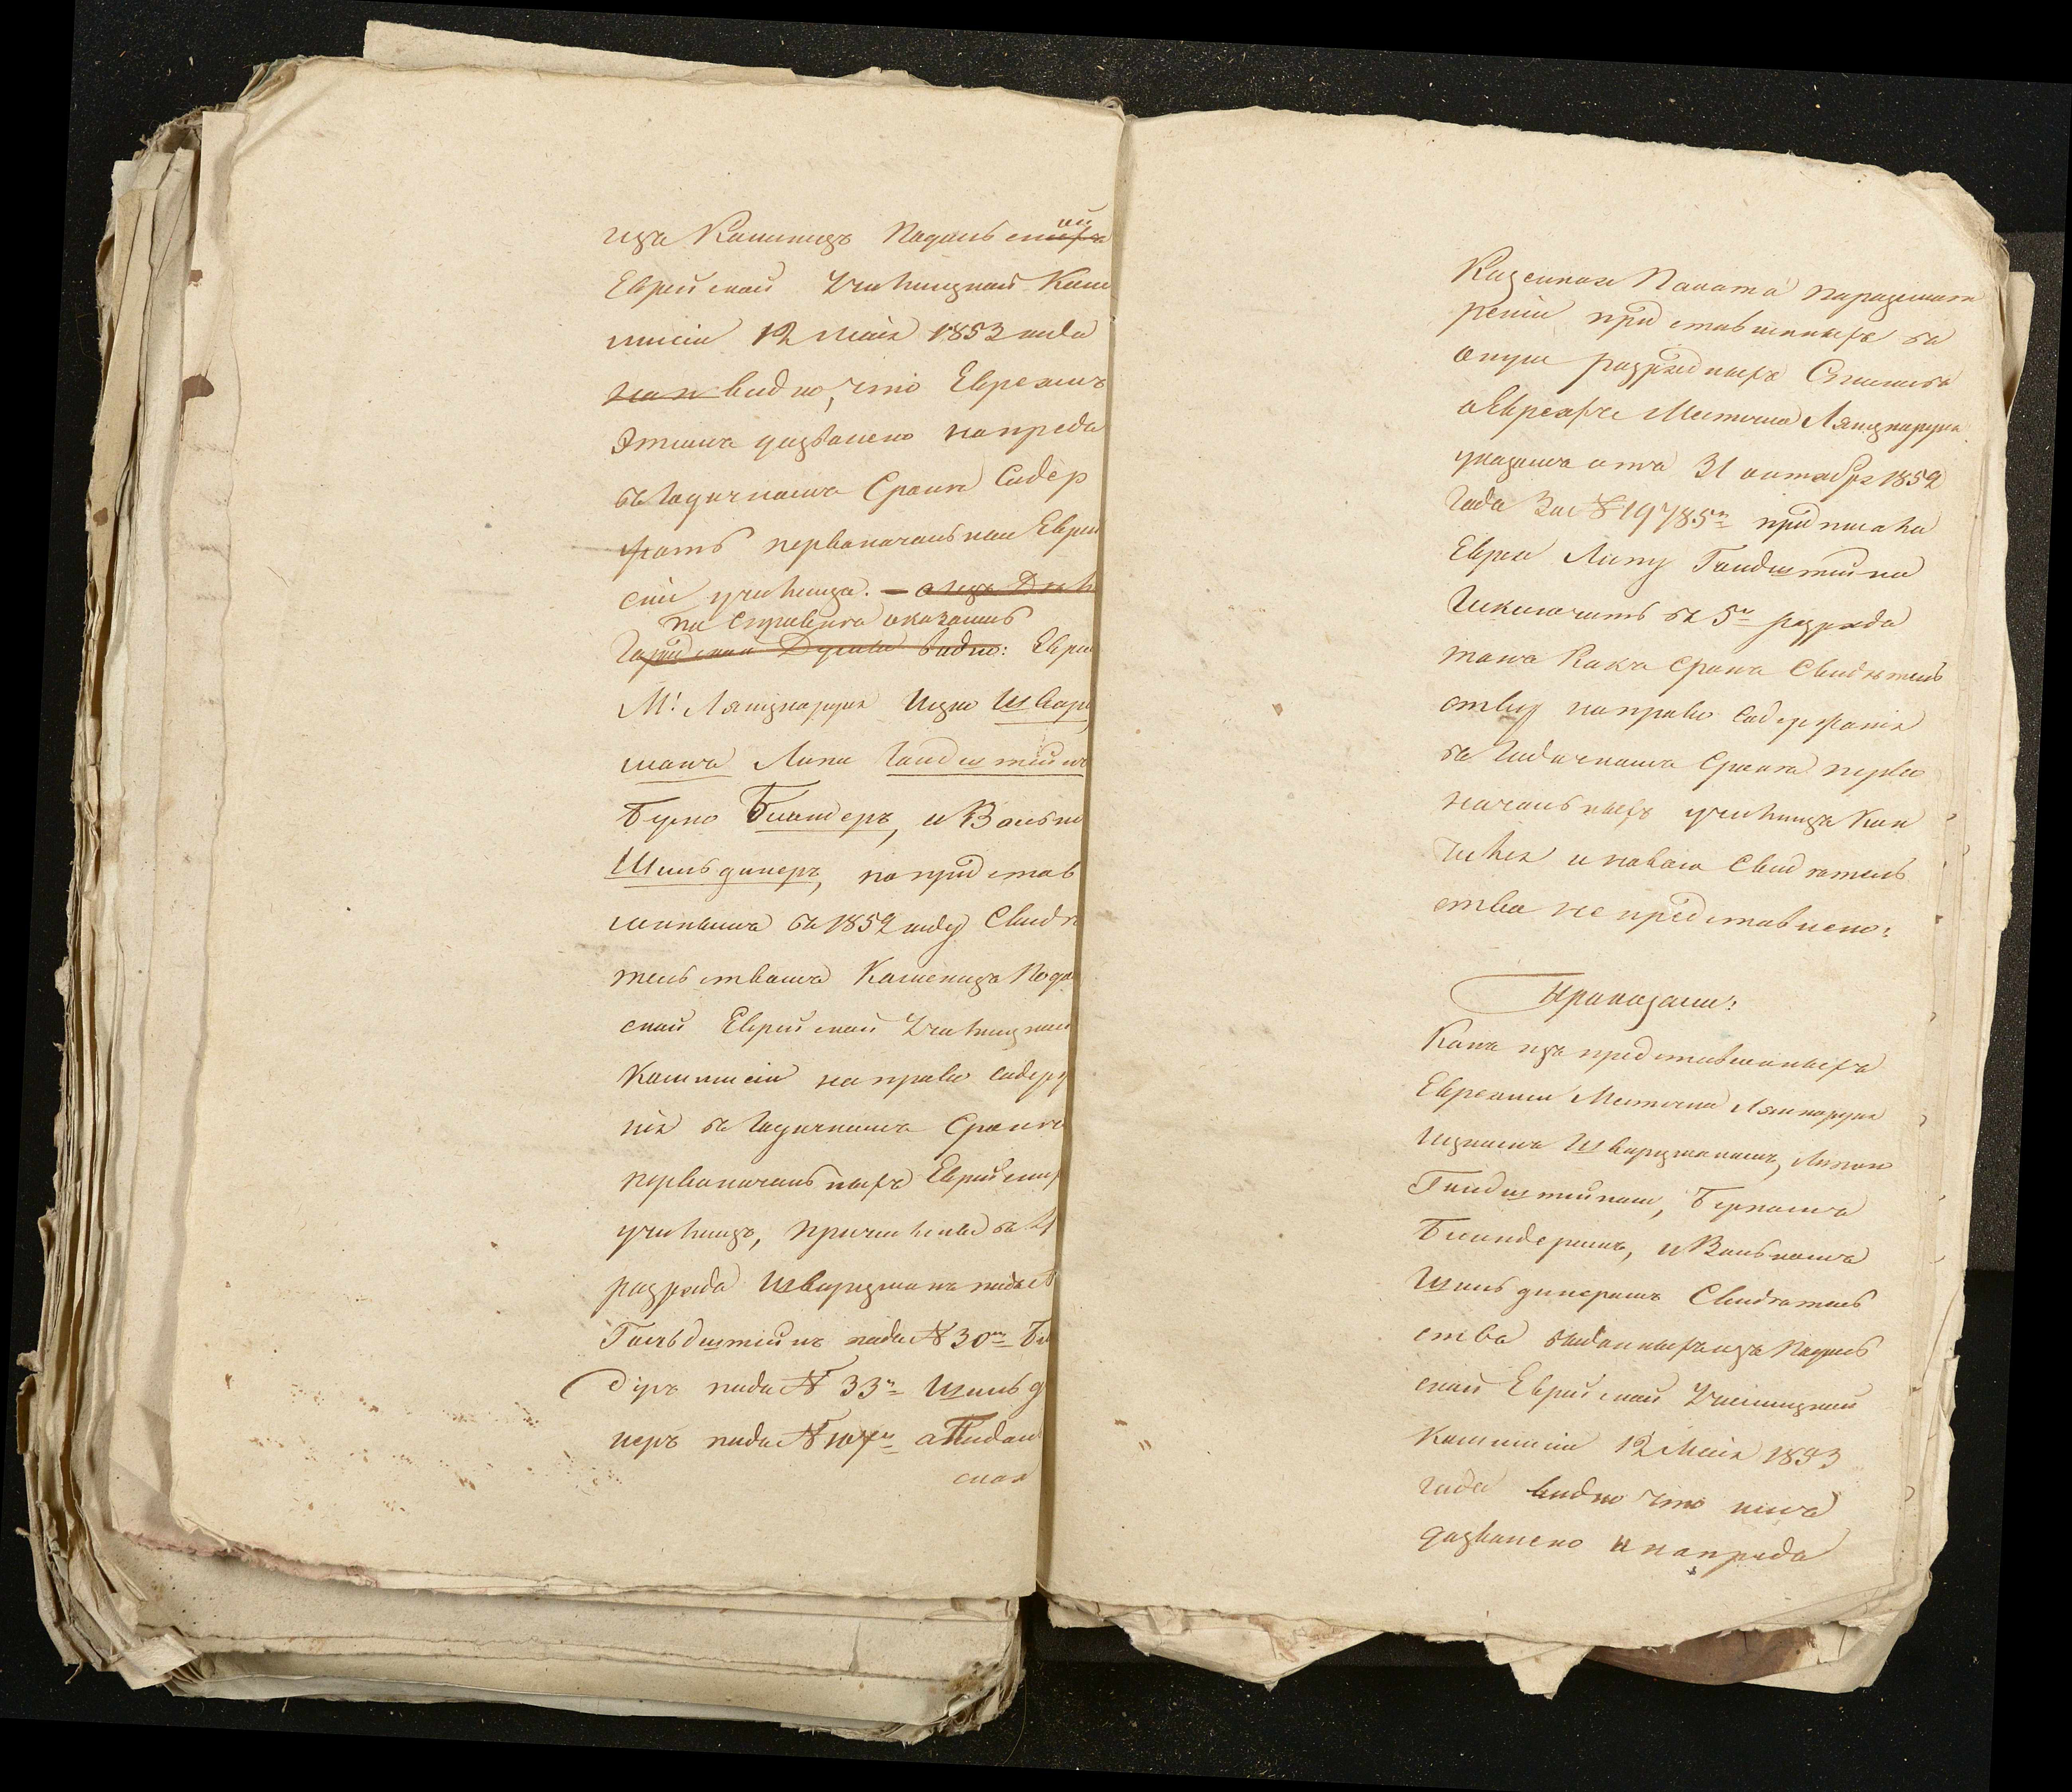 изъ Каменецъ Подольской
Еврейской Училищной Ком
мисіи 12 Маія 1853 года
видно, что Евреямъ
Этимъ дозволено напредъ
въ Годичномъ Срокѣ Содер
жать первоначальные Еврей
скіе училища. —
по справкѣ оказалось
Городской Думы видно: Евреи
М. Лянцкоруня Ицко Швар
манъ Липа Гольдштейнъ
Берко Бліндеръ, и Волько
Шильдинеръ, по представ
леннымъ въ 1852 году Свидѣ
тельствамъ Каменецъ Подо
ской Еврейской Училищной
Коммисіи на право содерж
нія въ Годичномъ Срокѣ
первоначальныхъ Еврейских
училищъ, причислены въ
разрядъ Шварцманъ подъ №
Гольдштейнъ подъ № 30м
деръ подъ № 33м Шильд
неръ подъ № аПодол
ская
Казенная Палата поразсмот
реніи представленныхъ въ
оную разрядныхъ Списковъ
оЕвреяхъ Мѣстечка Лянцкоруня
указомъ отъ 31 октября 1852
Года За № 19785м предписала
Еврея Липу Гольдштейна
Исключить въ 5й разрядъ
такъ какъ срокъ Свидѣтель
ству направо содержанія
въ Годичномъ Срокѣ перво
начальныхъ училищъ Кон
чился и новаго Свидѣтель
ства не представлено:
Приказали:
Какъ изъ представленныхъ
Евреями Мѣстечка Лянцкоруня
Ицкомъ Шварцманомъ, Липою
Гольдштейномъ, Беркомъ
Блиндеромъ, и Волькомъ
Шильдинеромъ Свидѣтель
ства выданныхъ изъ Подоль
ской Еврейской Училищной
Коммисіи 12 Маія 1853
года видно что имъ
дозволено и напредъ